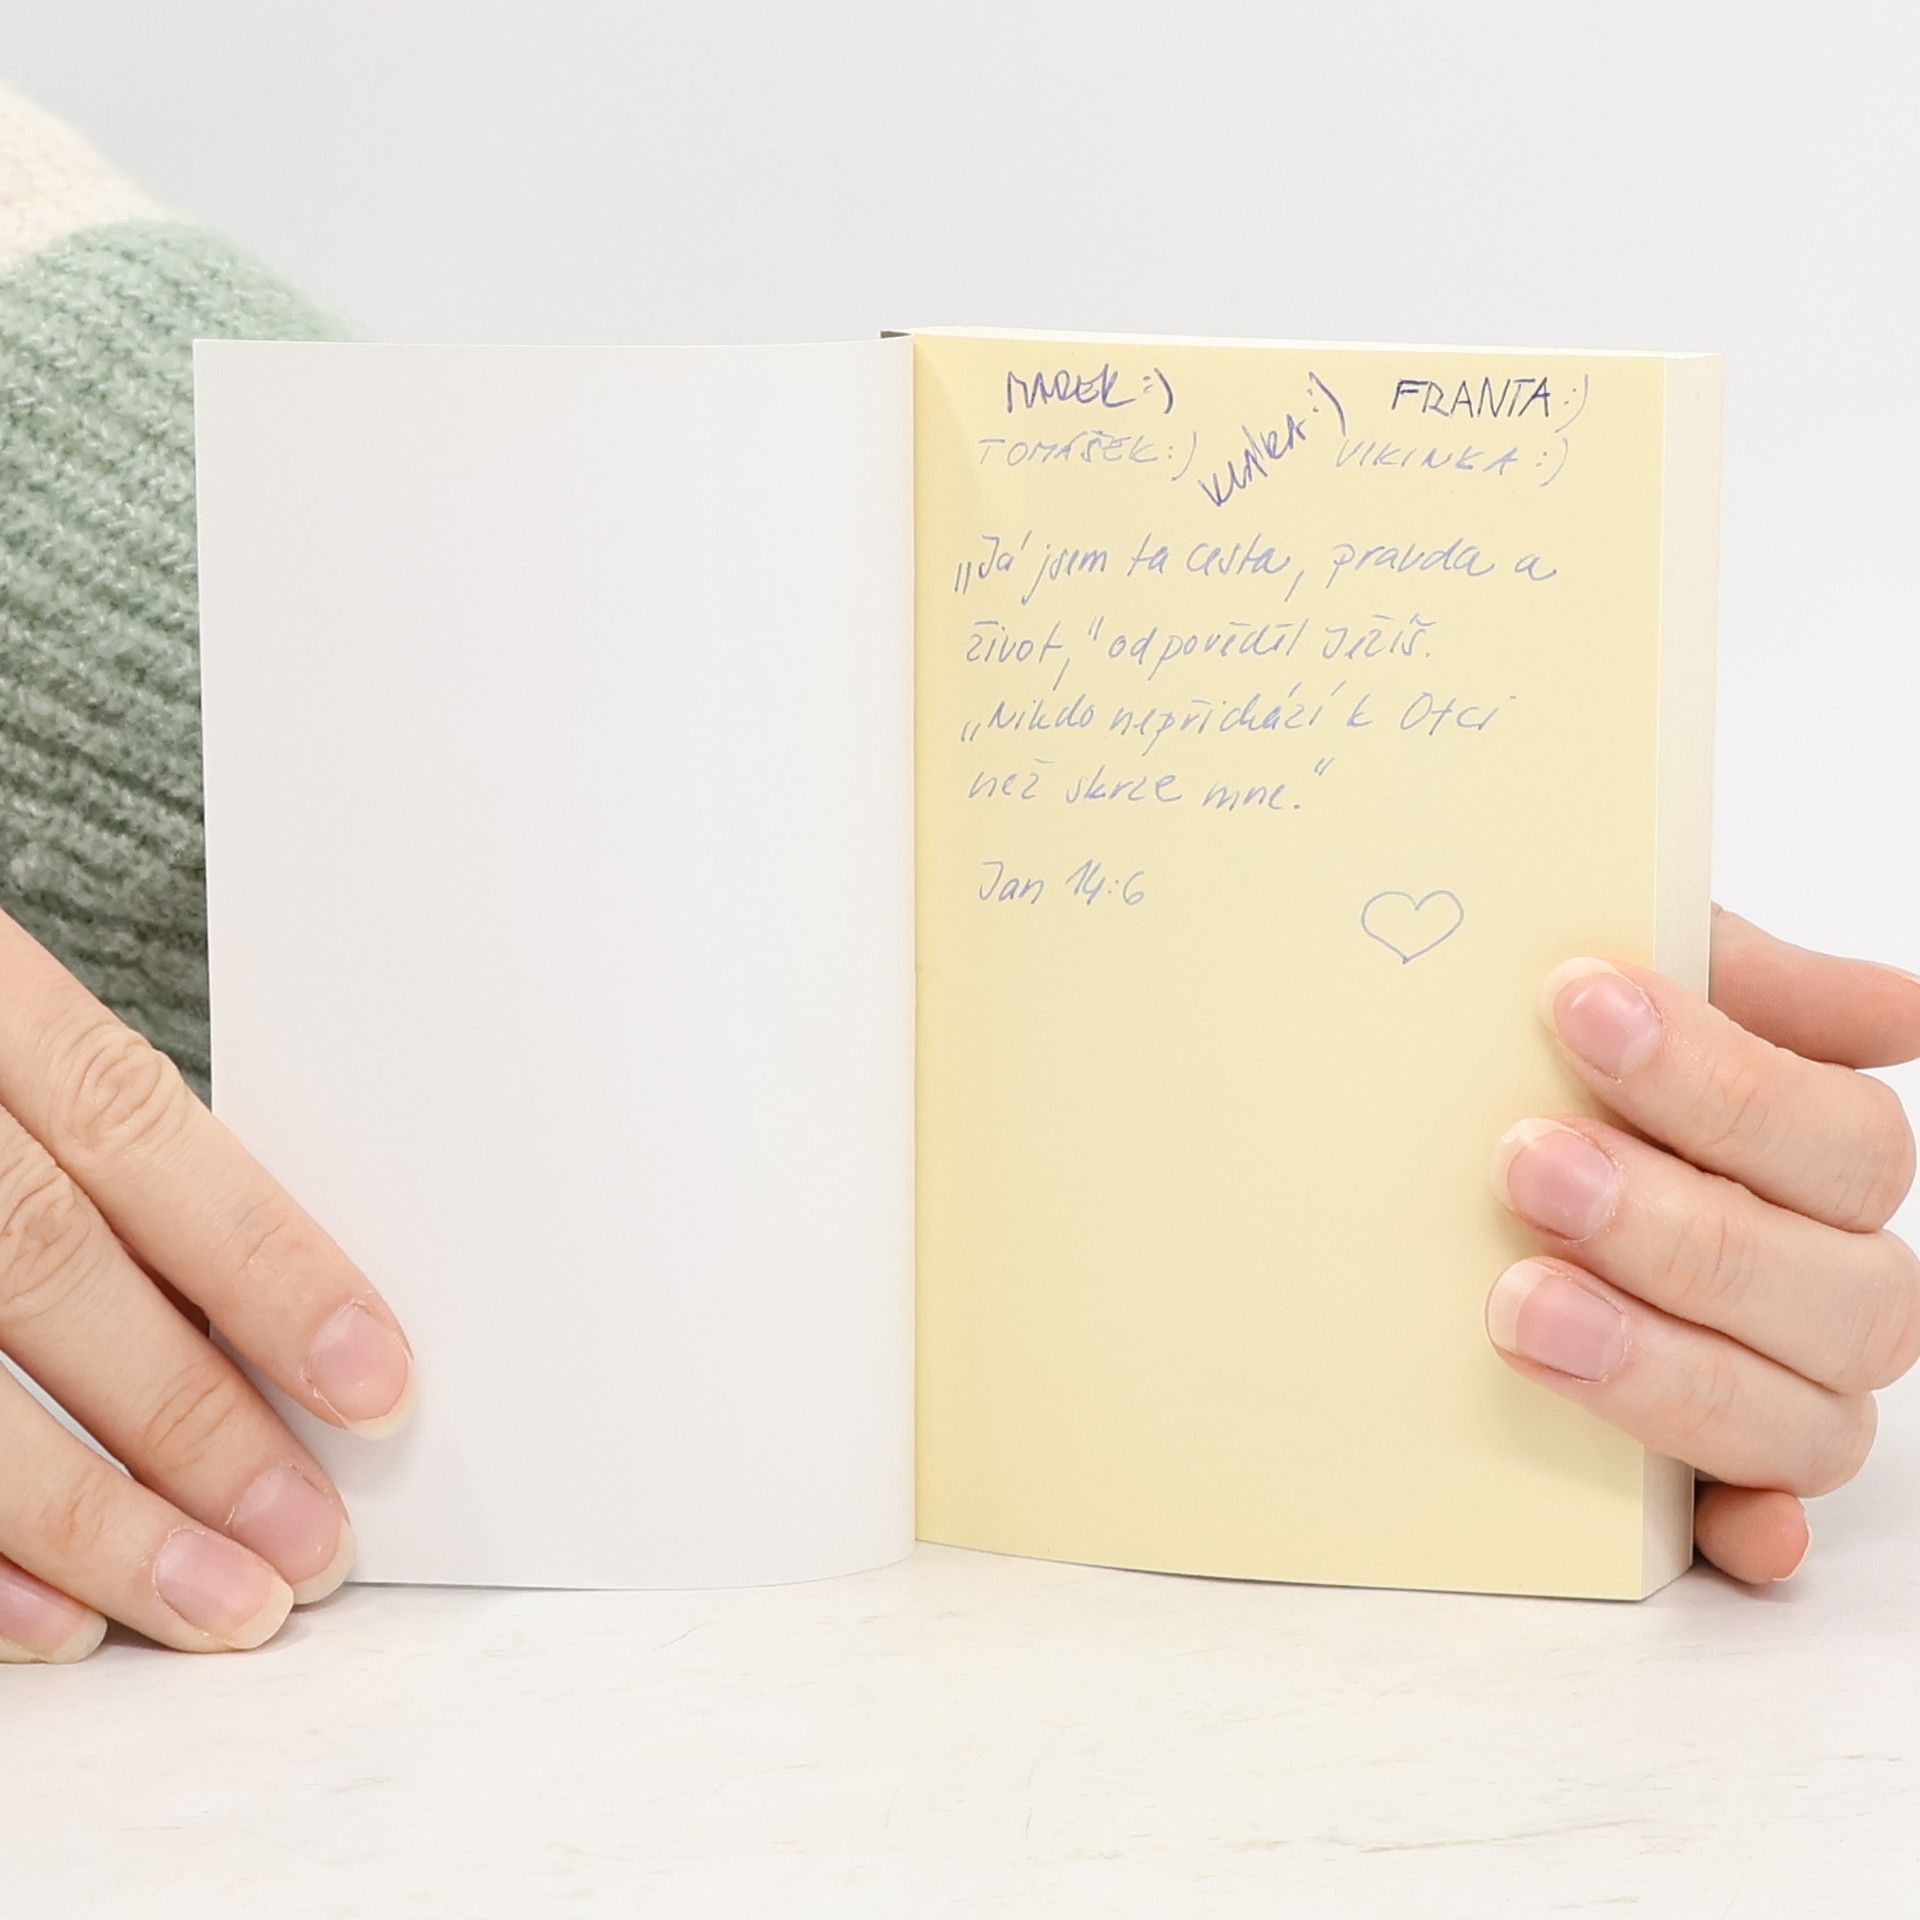 MAREK :)
FRANTA :)
TOMÁŠEK :)
VIKINKA :)
„Já jsem ta cesta, pravda a
život," odpověděl Ježíš.
„Nikdo nepřichází k Otci
než skrze mne."
Jan 14:6